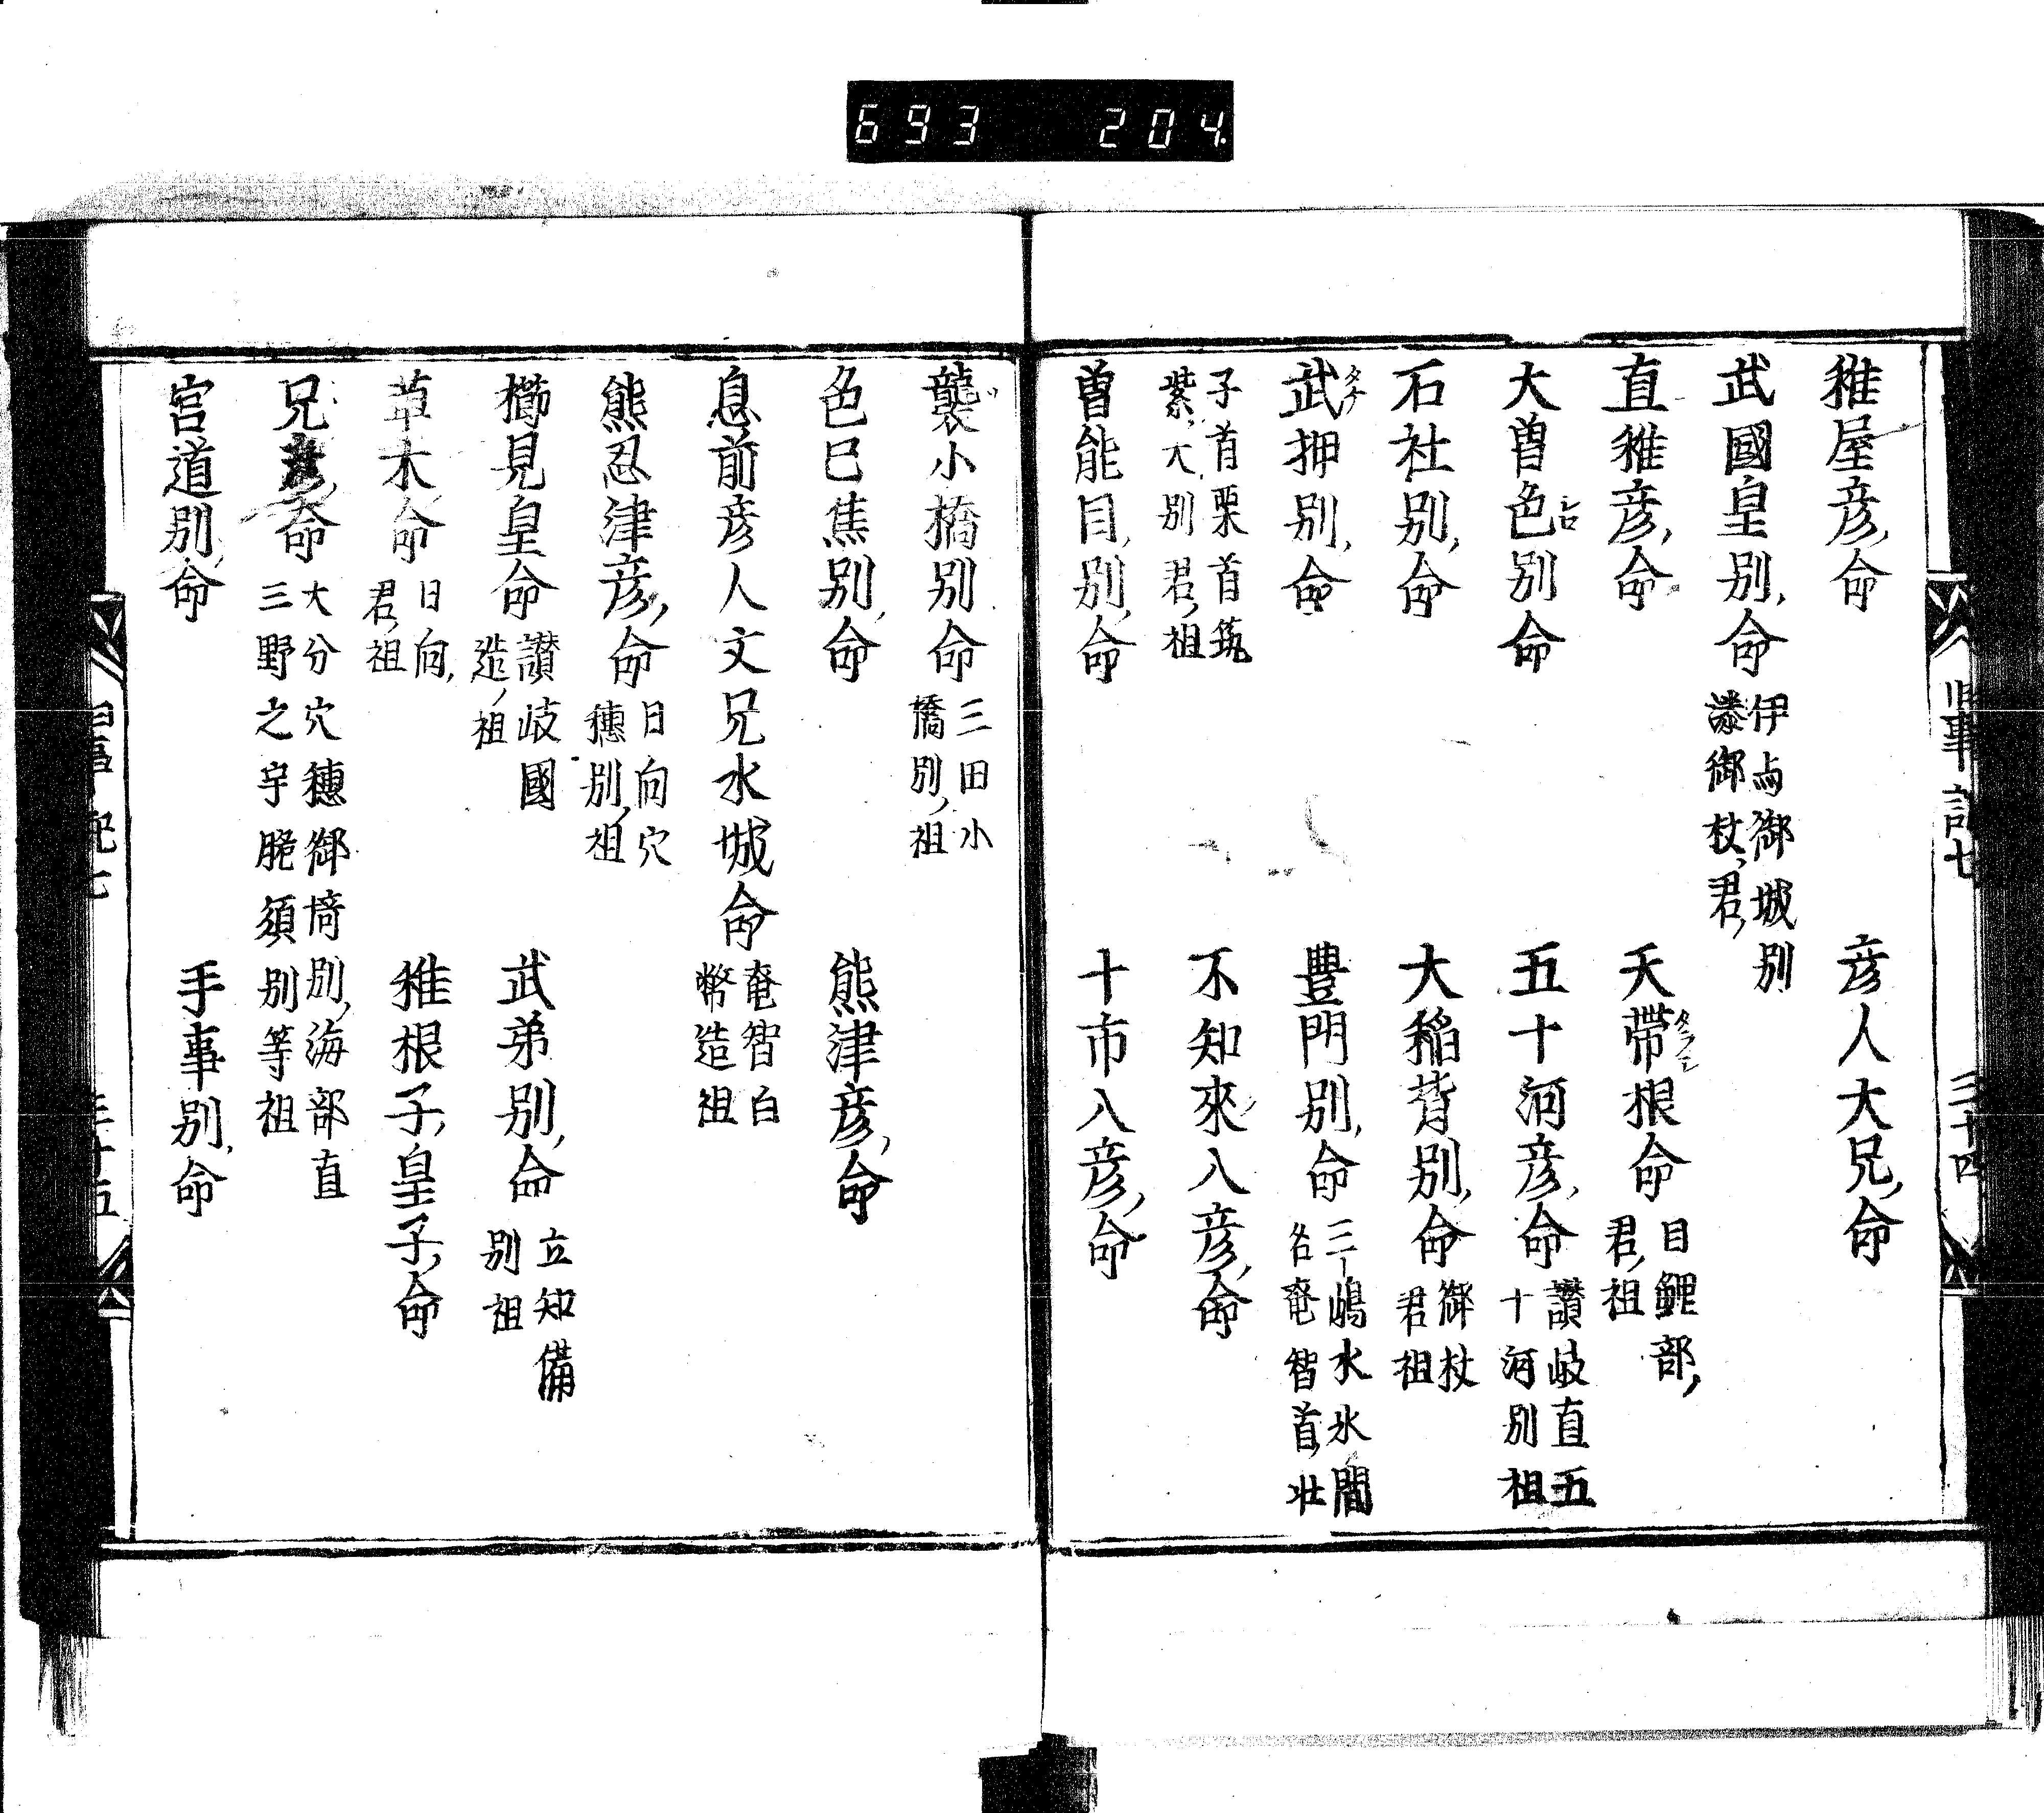 693 204
稚屋彦命 彦人大兄命
武國皇別命 伊与御城別
漆御杖君
直稚彦命 天帶根命 目鯉部
タラシ
君祖
大曽色別命 五十河彦命 讃岐直五
シロ
十河別祖
石社別命 大稲背別命 御杖
君祖
武押別命 豊門別命 三嶋水氷間
タケ
名奄智首壮
子首栗首筑 不知來入彦命
紫火別君祖
曽能目別命 十市入彦命
襲小橋別命 三田小
橋別祖
色巳焦別命 熊津彦命
息前彦人文兄水城命 奄智白
幣造祖
熊忍津彦命 日向穴
穗別祖
櫛見皇命 讃岐國 武弟別命 立知備
造祖 別祖
草木命 日向 稚根子皇子命
君祖
兄彦命 大分穴穗御埼別海部直
三野之宇𦙾須別等祖
宮道別命 手事別命
旧事記七 三十四
旧事記七 三十五